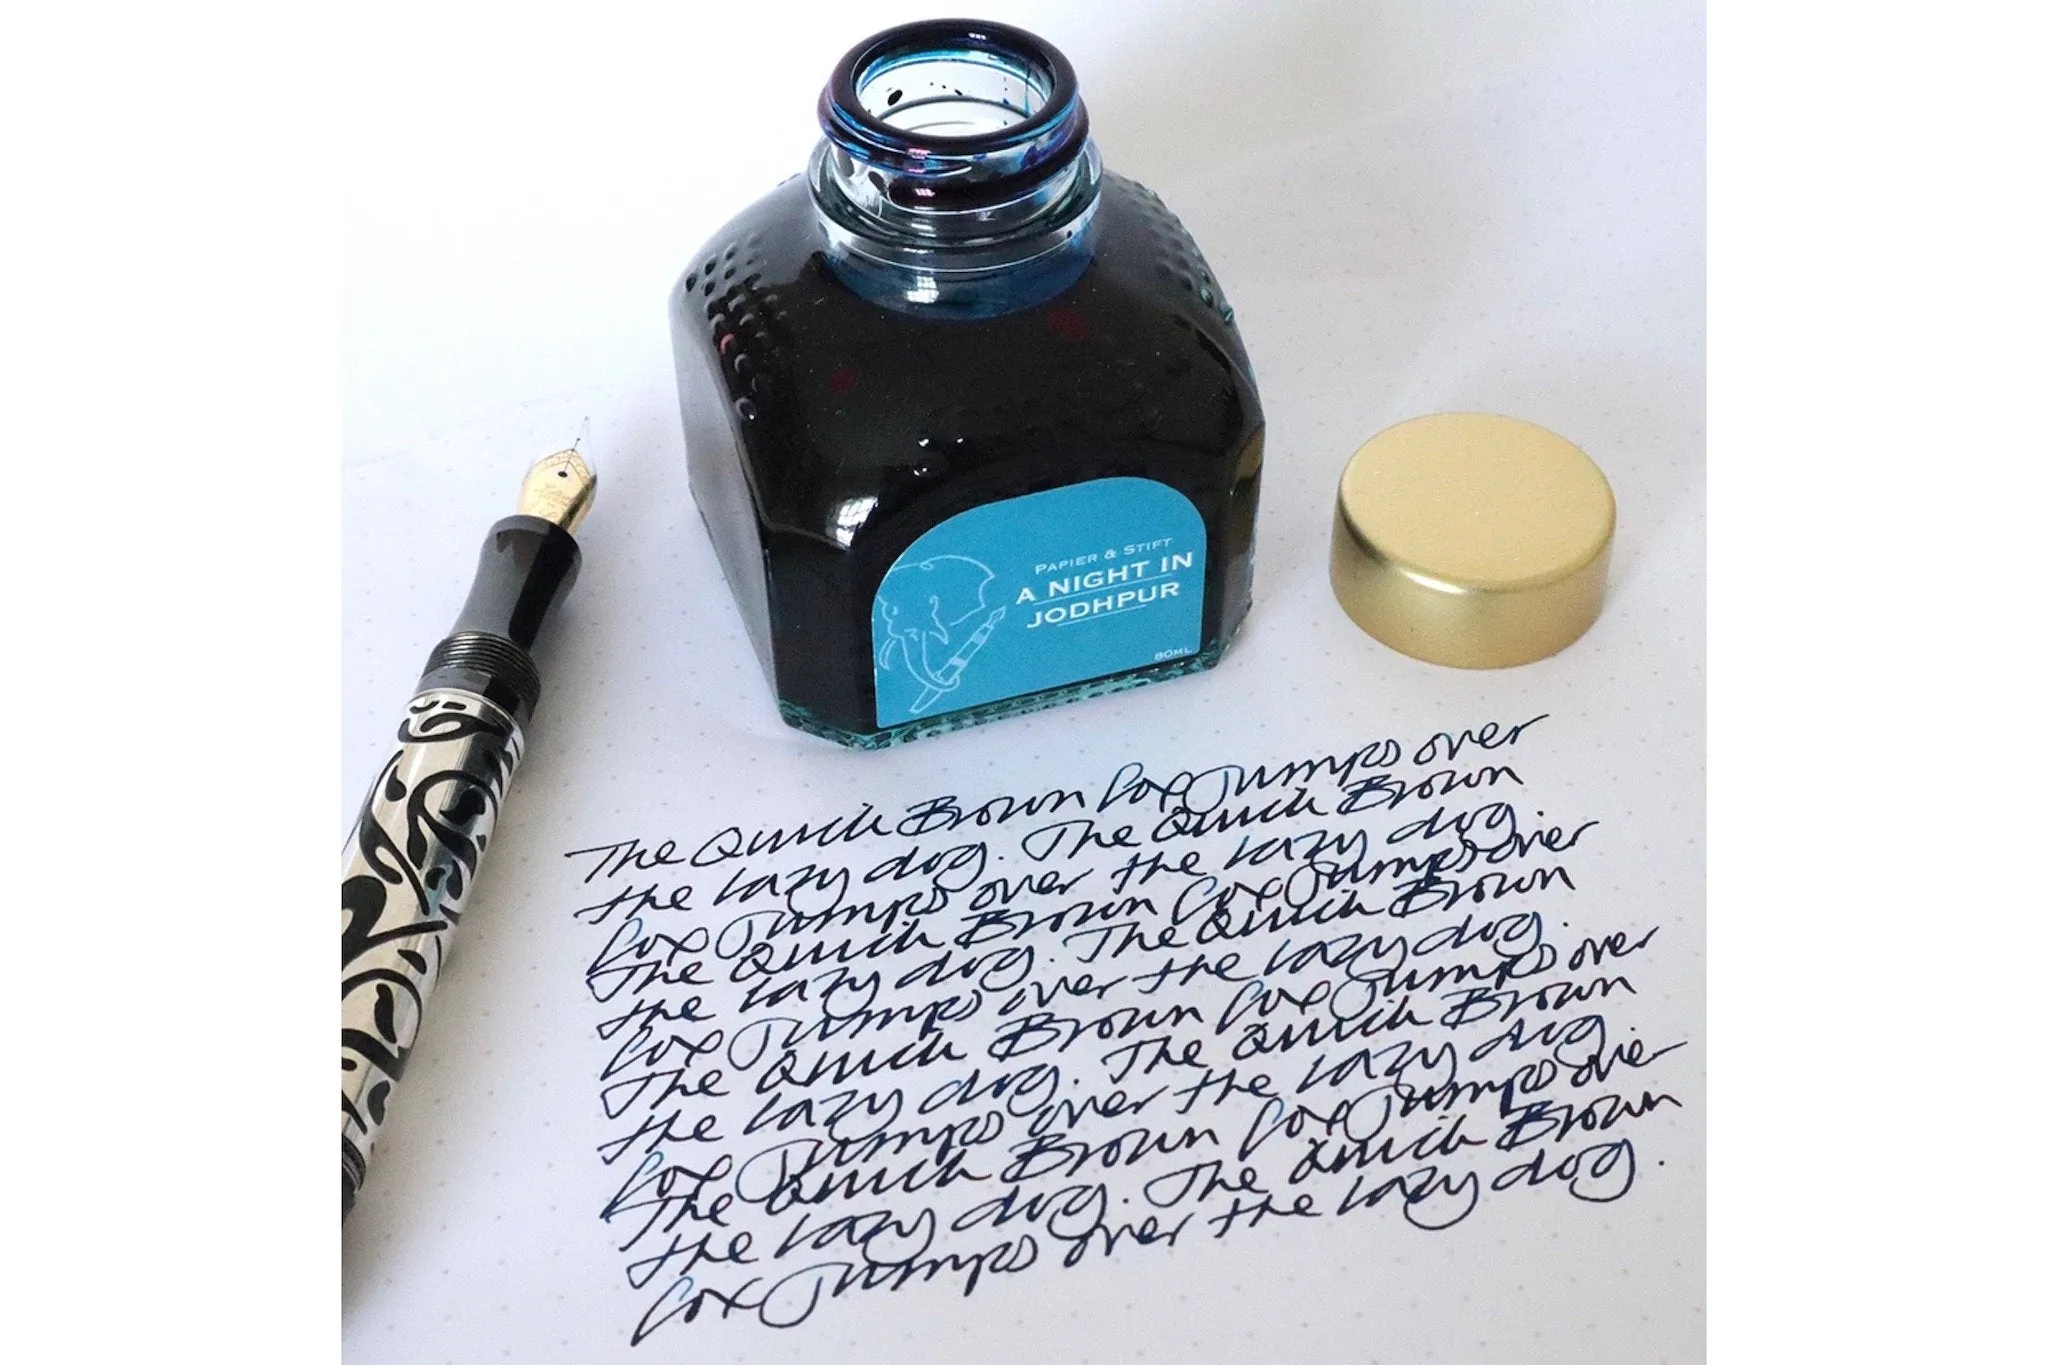 PAPIER & STIFT
A NIGHT IN
JODHPUR
80ML
The Quick Brown fox Jumps over
the lazy dog. The Quick Brown
fox Jumps over the lazy dog.
The Quick Brown fox Jumps over
the lazy dog. The Quick Brown
fox Jumps over the lazy dog.
The Quick Brown fox Jumps over
the lazy dog. The Quick Brown
fox Jumps over the lazy dog.
The Quick Brown fox Jumps over
the lazy dog. The Quick Brown
fox Jumps over the lazy dog.